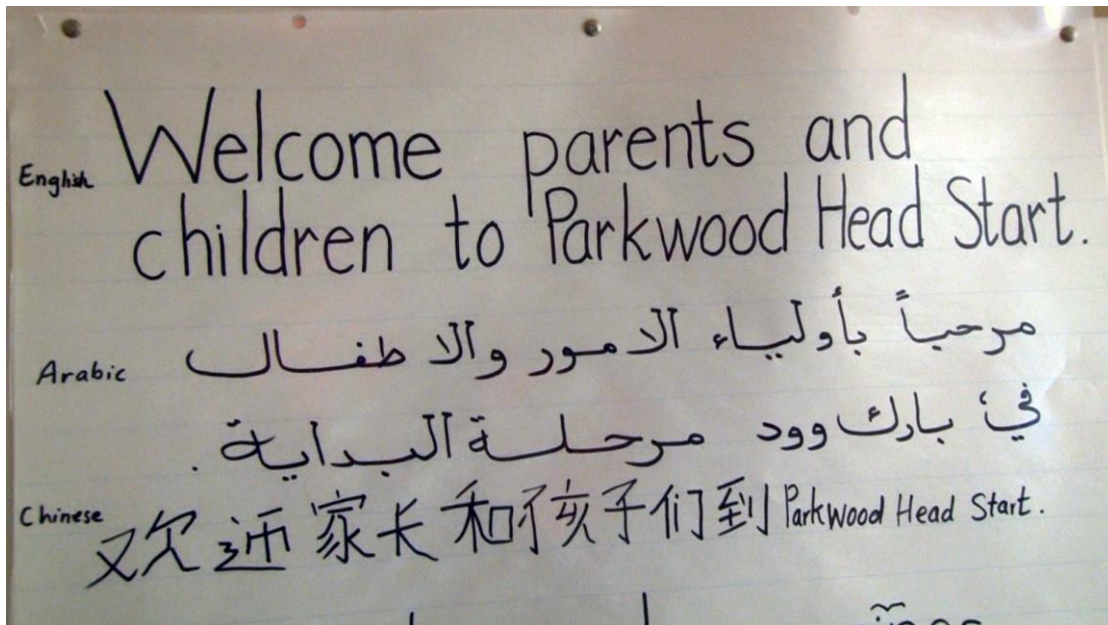 English Welcome parents and
children to Parkwood Head Start.
Arabic مرحباً بأولياء الامور والاطفال
في بارك وود مرحلة البداية.
Chinese 欢迎家长和孩子们到 Parkwood Head Start.